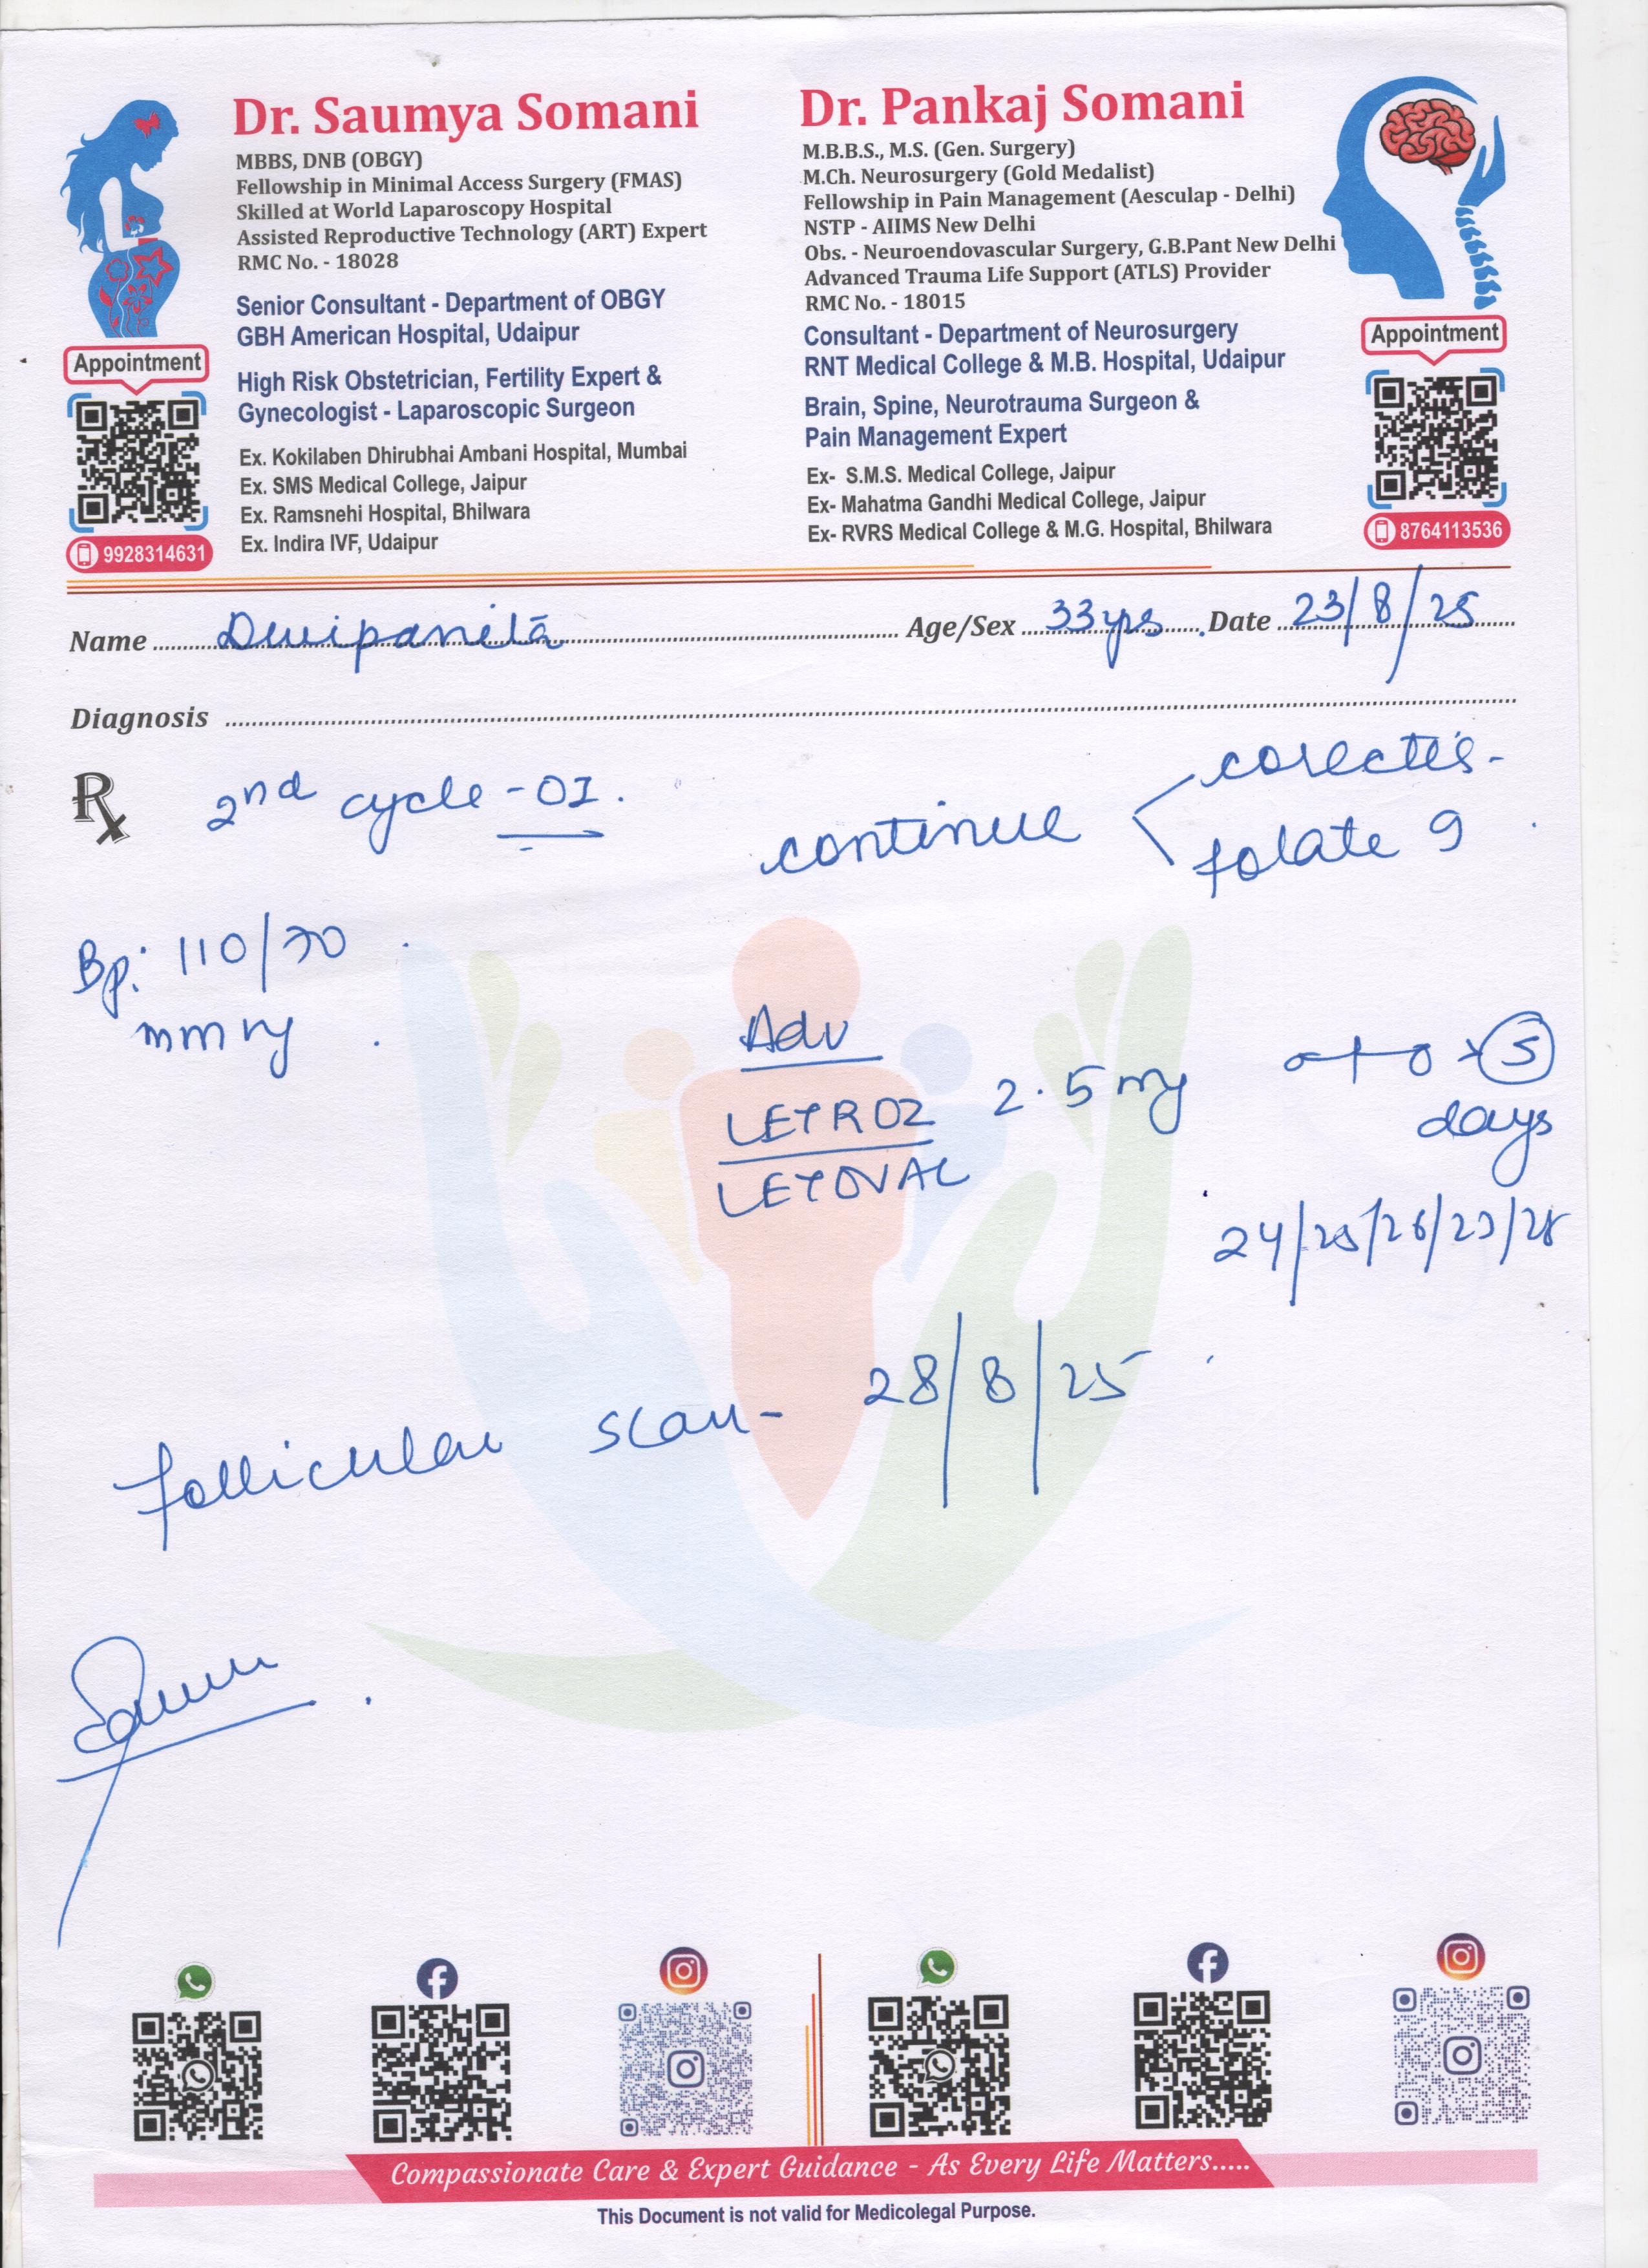 Dr. Saumya Somani
MBBS, DNB (OBGY)
Fellowship in Minimal Access Surgery (FMAS)
Skilled at World Laparoscopy Hospital
Assisted Reproductive Technology (ART) Expert
RMC No. - 18028
Senior Consultant - Department of OBGY
GBH American Hospital, Udaipur
High Risk Obstetrician, Fertility Expert &
Gynecologist - Laparoscopic Surgeon
Ex. Kokilaben Dhirubhai Ambani Hospital, Mumbai
Ex. SMS Medical College, Jaipur
Ex. Ramsnehi Hospital, Bhilwara
Ex. Indira IVF, Udaipur
Appointment
9928314631
Dr. Pankaj Somani
M.B.B.S., M.S. (Gen. Surgery)
M.Ch. Neurosurgery (Gold Medalist)
Fellowship in Pain Management (Aesculap - Delhi)
NSTP - AIIMS New Delhi
Obs. - Neuroendovascular Surgery, G.B.Pant New Delhi
Advanced Trauma Life Support (ATLS) Provider
RMC No. - 18015
Consultant - Department of Neurosurgery
RNT Medical College & M.B. Hospital, Udaipur
Brain, Spine, Neurotrauma Surgeon &
Pain Management Expert
Ex- S.M.S. Medical College, Jaipur
Ex- Mahatma Gandhi Medical College, Jaipur
Ex- RVRS Medical College & M.G. Hospital, Bhilwara
Appointment
8764113536
Name Dwipanita Age/Sex 33yrs Date 23/8/25
Diagnosis
Rx 2nd cycle - OI.
continue
corectis-
folate 9
Bp: 110/70
mmhg
Adv
LETROZ 2.5 mg x 5
days
LETOVAL
24/25/26/27/28
Follicular scan - 28/8/25
Compassionate Care & Expert Guidance - As Every Life Matters.....
This Document is not valid for Medicolegal Purpose.